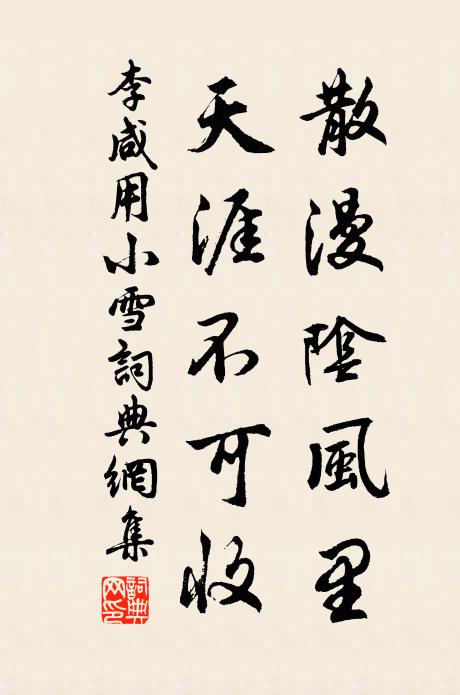 散漫陰風里
天涯不可收
李咸用小雪詞典網集
詞典网印